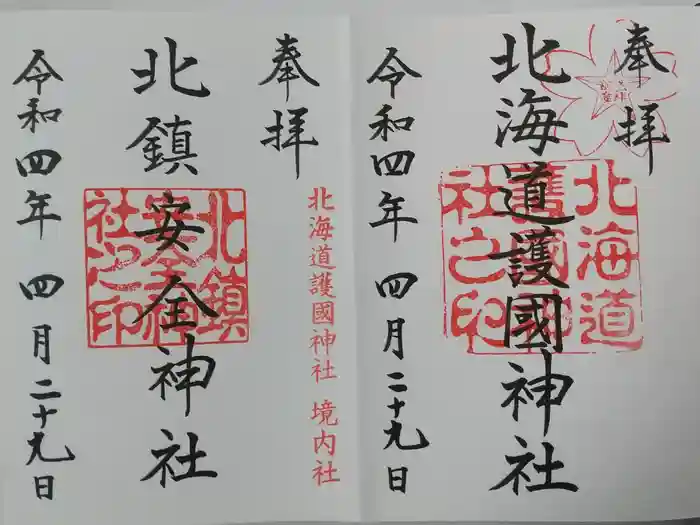 奉拝
北海道護國神社
令和四年 四月二十九日
北海道護國神社之印
奉拝
北海道護國神社 境内社
北鎮安全神社
令和四年 四月二十九日
北鎮安全神社之印